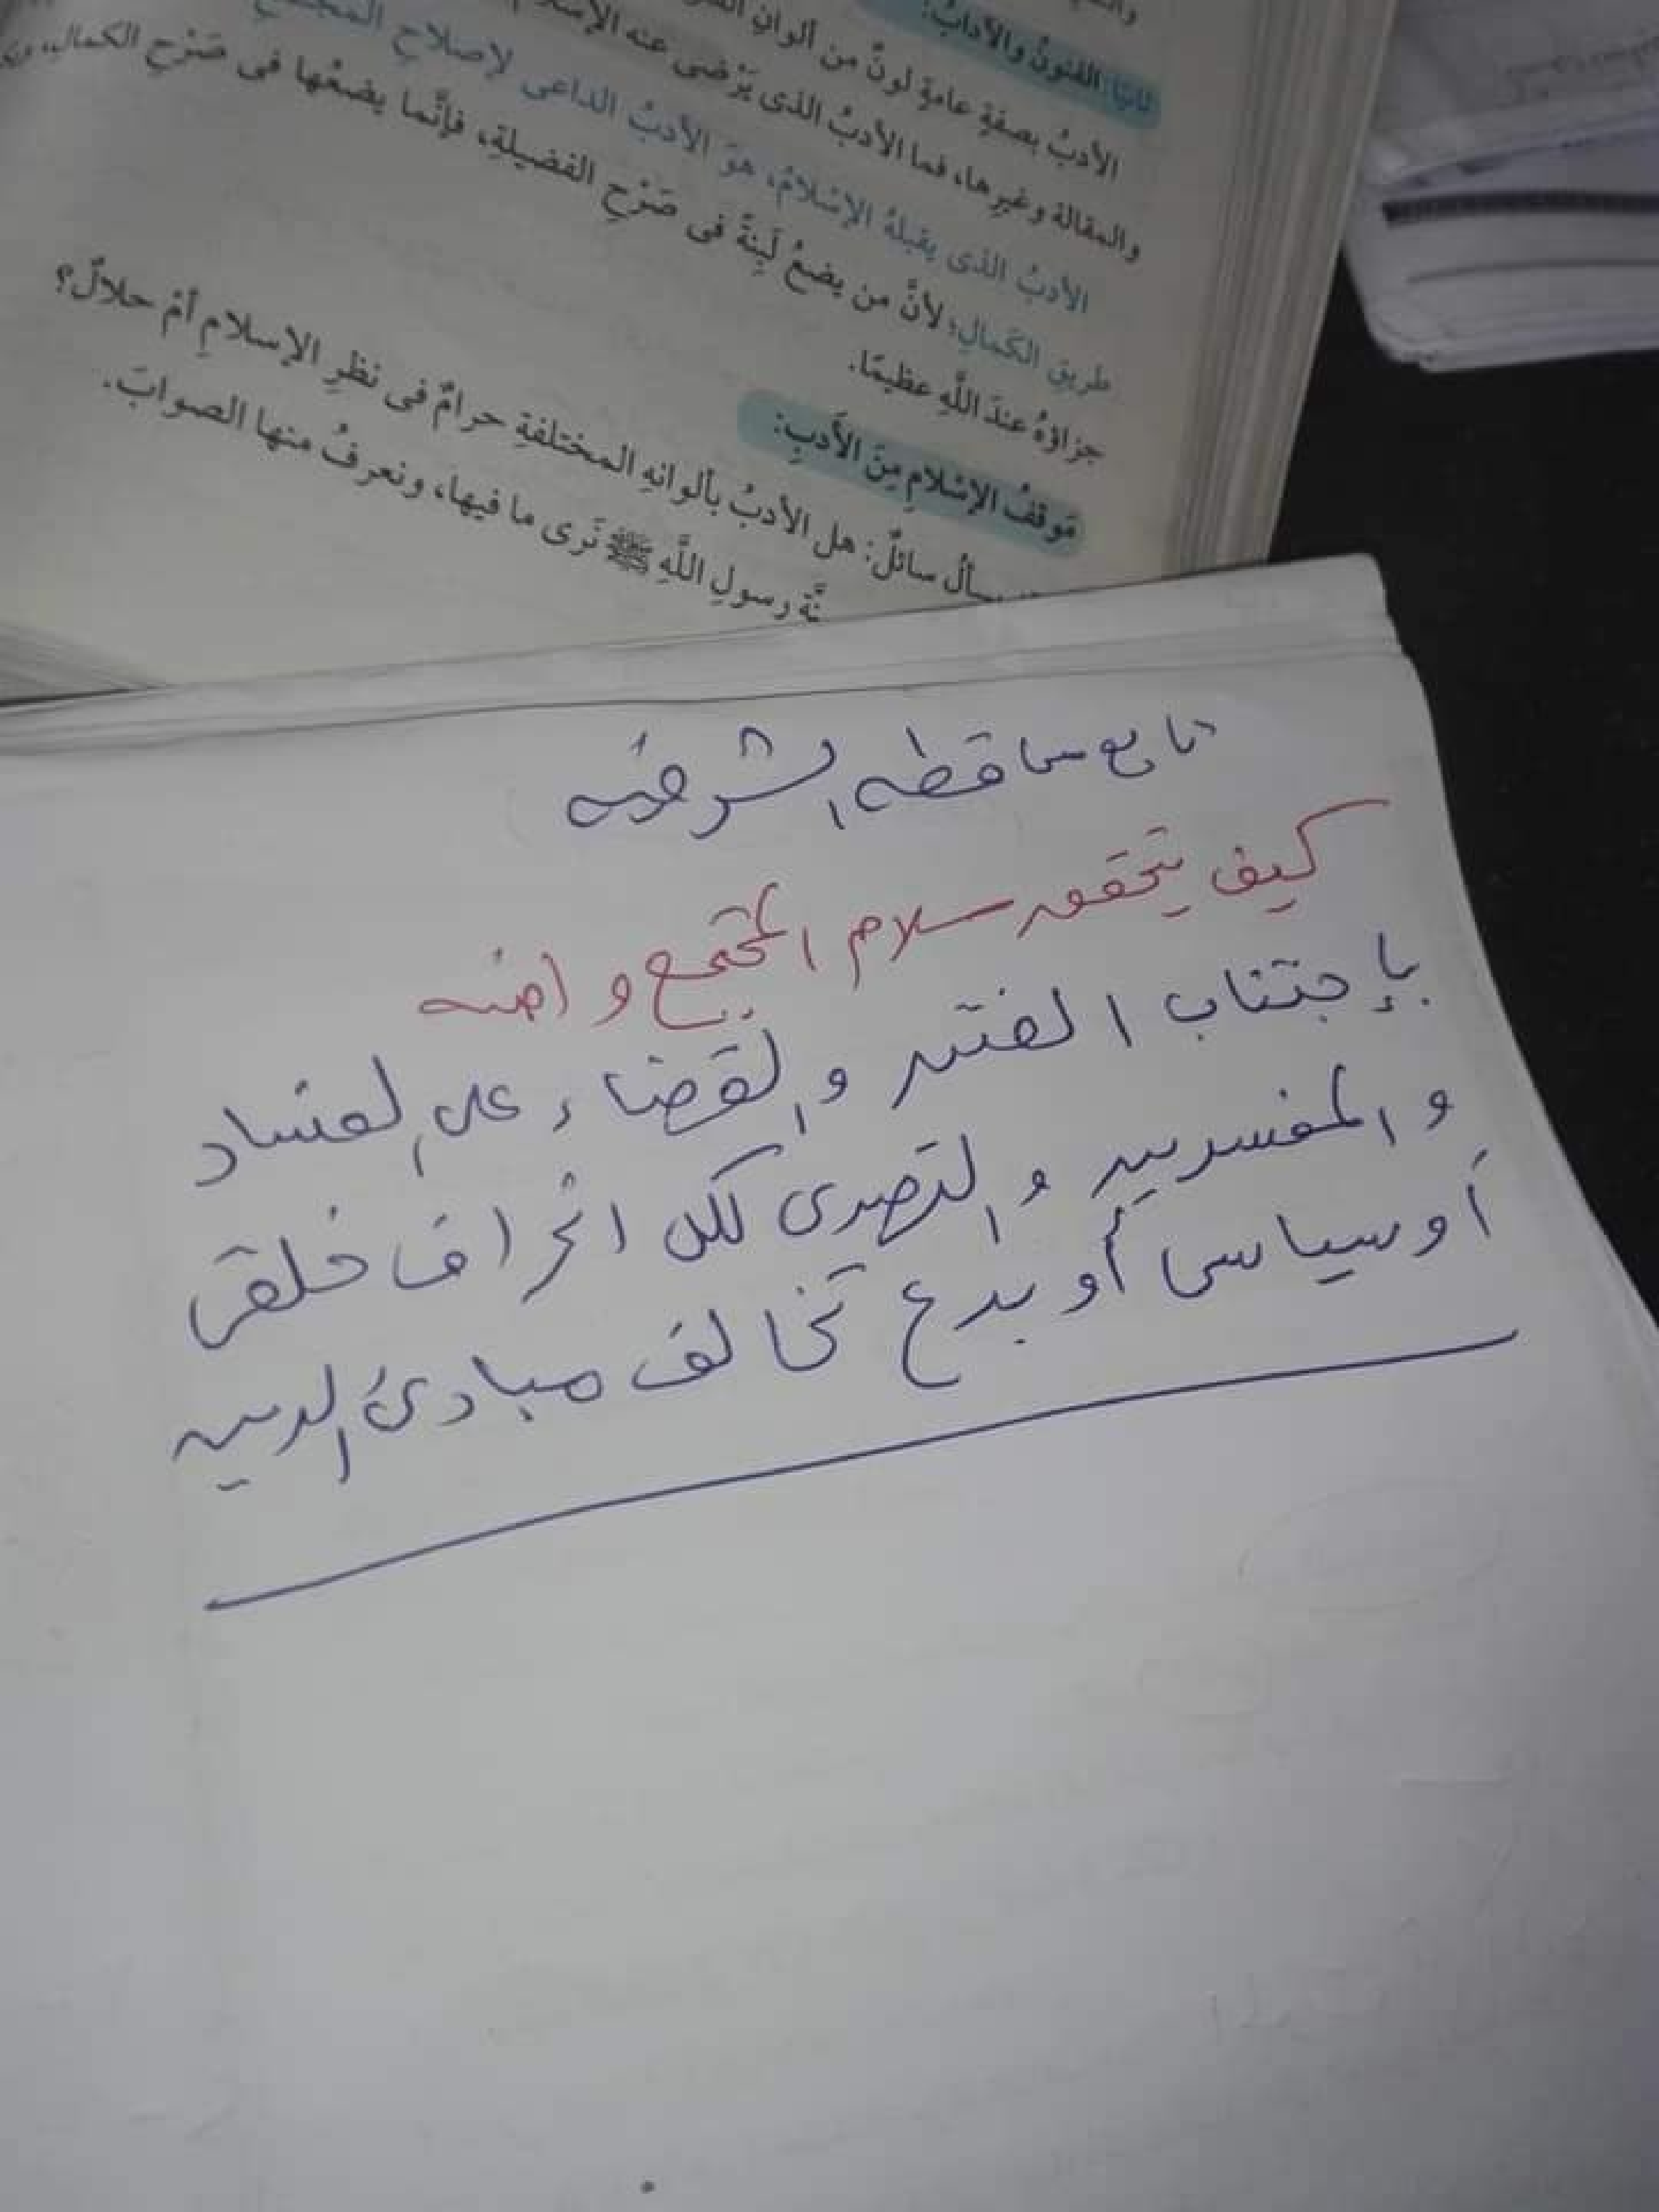 ثانيًا: الفنونُ والآدابُ:
الأدبُ بصفةٍ عامةٍ لونٌ من ألوانِ
والمقالة وغيرِها، فما الأدبُ الذى يَرْضى عنه الإسلام
الأدبُ الذى يقبلهُ الإسْلامُ، هوَ الأدبُ الداعى لإصلاحِ المجتمع
طريقِ الكمالِ؛ لأنَّ من يضعُ لَبِنةً فى صَرْحِ الفضيلةِ، فإنَّما يضعُها فى صَرْحِ الكمالِ
جزاؤهُ عندَ اللَّهِ عظيمًا.
مَوقفُ الإسْلامِ مِنَ الأَدبِ:
يسألُ سائلٌ: هل الأدبُ بألوانهِ المختلفةِ حرامٌ فى نظرِ الإسلامِ أمْ حلالٌ؟
نَّة رسولِ اللَّهِ ﷺ نَرى ما فيها، ونعرفُ منها الصوابَ.
تابع ساقطه الشرقيه
كيف يتحقق سلام المجتمع وامنه
بإجتناب الفتن والقضاء على الفساد
والمفسدين والتصدى لكل انحراف خلقى
أو سياسى أو بدع تخالف مبادئ الدين